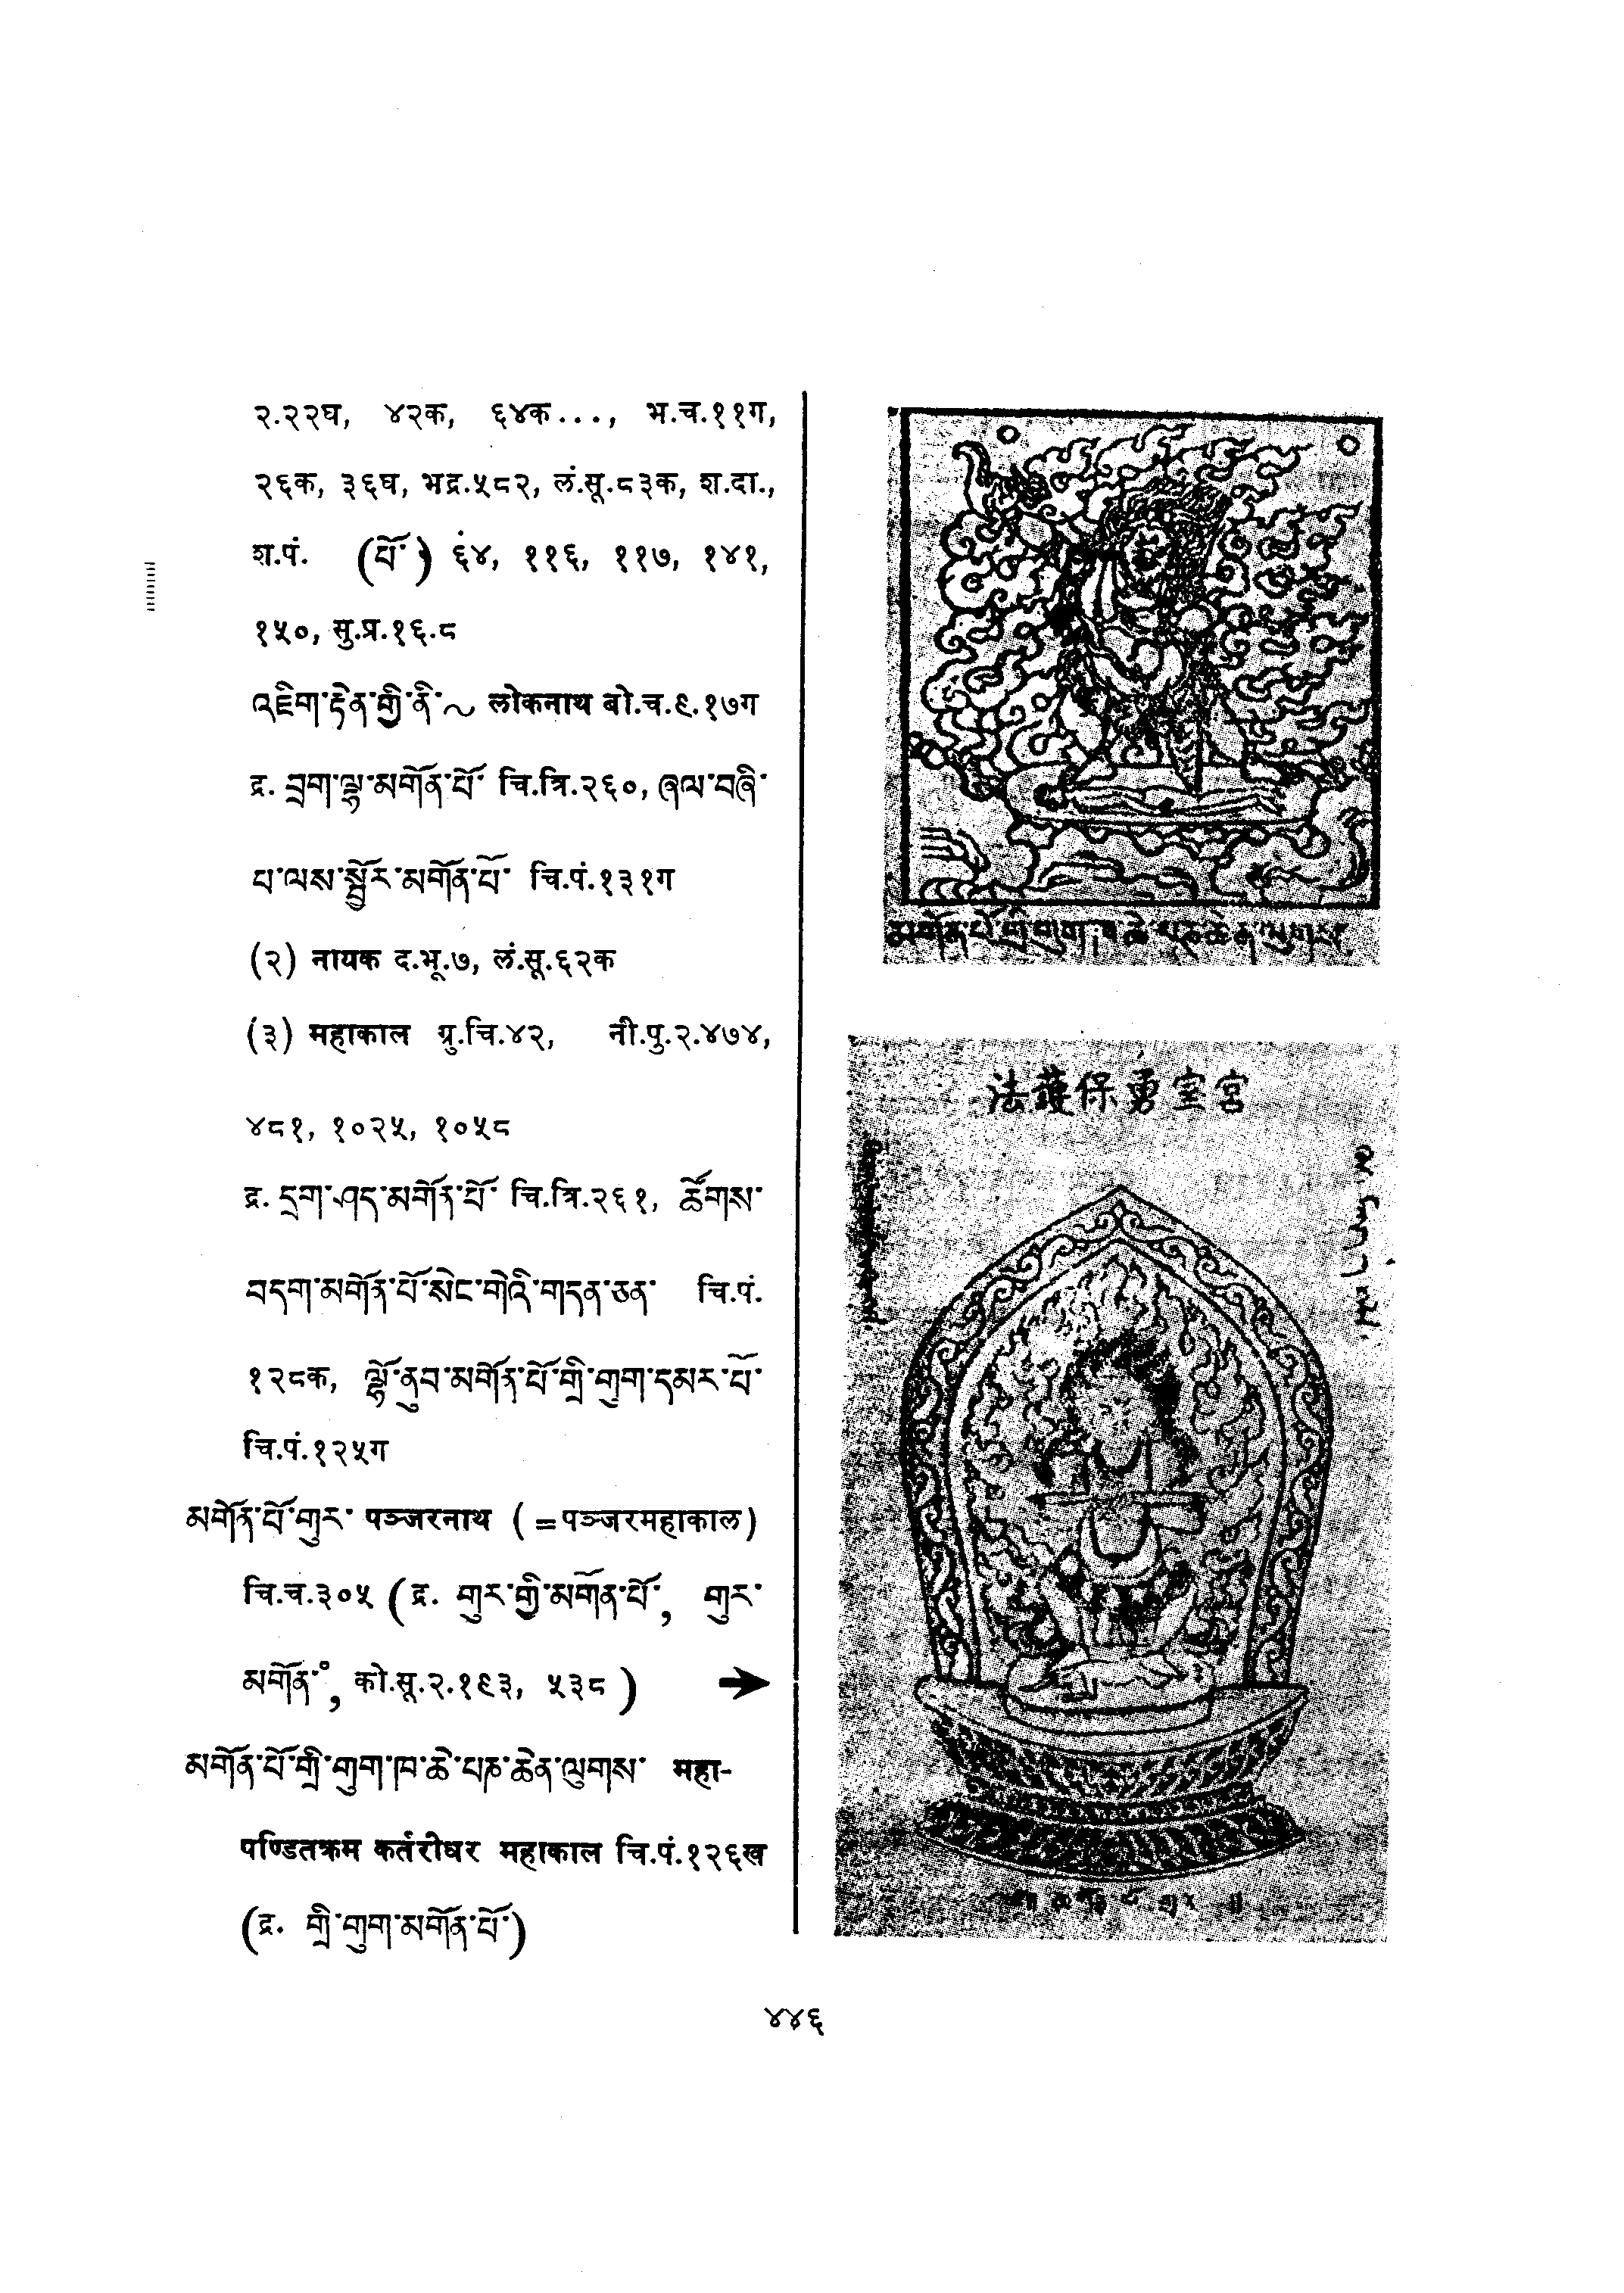 २.२२घ, ४२क, ६४क..., भ.च.११ग,
२६क, ३६घ, भद्र.५८२, लं.सू.८३क, श.दा.,
श.पं. (པོ་) ६४, ११६, ११७, १४१,
१५०, सु.प्र.१६.८
འཇིག་རྟེན་གྱི་ནི་～ लोकनाथ बो.च.९.१७ग
द्र. བྲག་ལྷ་མགོན་པོ་ चि.त्रि.२६०, ཞལ་བཞི་
པ་ལས་སྦྱོར་མགོན་པོ་ चि.पं.१३१ग
(२) नायक द.भू.७, लं.सू.६२क
(३) महाकाल ग्रु.चि.४२, नी.पु.२.४७४,
४८१, १०२५, १०५८
द्र. དྲག་ཤད་མགོན་པོ་ चि.त्रि.२६१, ཚོགས་
བདག་མགོན་པོ་སེང་གེའི་གདན་ཅན་ चि.पं.
१२८क, ལྷོ་ནུབ་མགོན་པོ་གྲི་གུག་དམར་པོ་
चि.पं.१२५ग
མགོན་པོ་གུར་ पञ्जरनाथ (=पञ्जरमहाकाल)
चि.च.३०५ (द्र. གུར་གྱི་མགོན་པོ་, གུར་
མགོན་°, को.सू.२.१९३, ५३८) →
མགོན་པོ་གྲི་གུག་ཁ་ཆེ་པཎ་ཆེན་ལུགས་ महा-
पण्डितक्रम कर्तरीधर महाकाल चि.पं.१२६ख
(द्र. གྲི་གུག་མགོན་པོ་)
མགོན་པོ་གྲི་གུག་ཁ་ཆེ་པཎ་ཆེན་ལུགས
法護保勇室宮
४४६